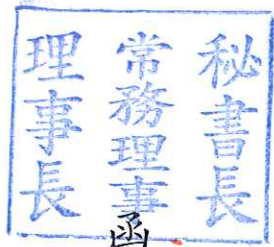 秘書長
常務理事
理事長
函